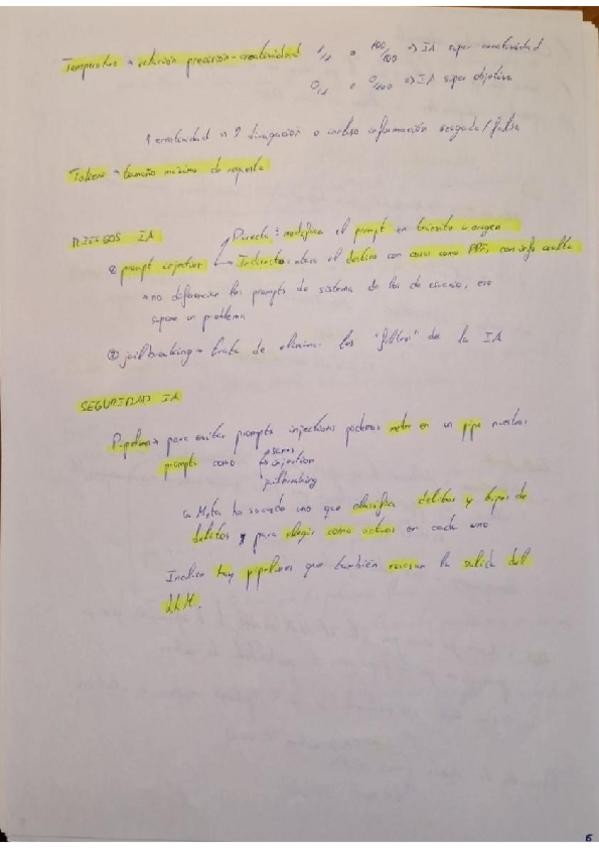 Temperatura → relación precisión-creatividad 1/1 o 100/100 => IA super creatividad
0/1 o 0/100 => IA super objetiva
↑ creatividad => ↑ divagación o incluso información sesgada/falsa
Tokens → tamaño máximo de respuesta
RIESGOS IA
prompt injection Directo: modifica el prompt en tránsito u origen
Indirecto: altera el destino con cosas como PDFs con info oculta
no diferenciar los prompts de sistema de los de usuario, eso
supone un problema
jailbreaking → trata de eliminar los "filtros" de la IA
SEGURIDAD IA
Pipelines → para evitar prompts injections podemos meter en un pipe nuestros
prompts como
injection
jailbreaking
Meta ha sacado uno que clasifica delitos y tipos de
delitos para elegir como actuar en cada uno
Incluso hay pipelines que también revisan la salida del
LLM.
6